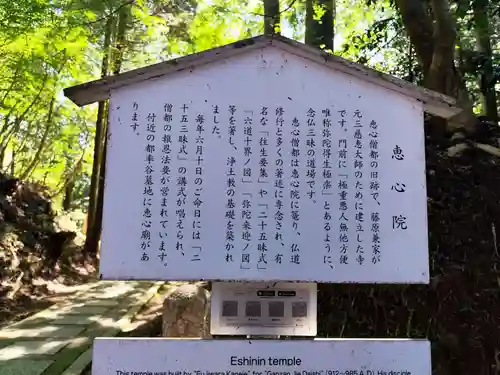 恵心院
恵心僧都の旧跡で、藤原兼家が
元三慈恵大師のために建立した寺
です。門前に「極重悪人無他方便
唯称弥陀得生極楽」とあるように、
念仏三昧の道場です。
恵心僧都は恵心院に篭り、仏道
修行と多くの著述に専念され、有
名な「往生要集」や「二十五昧式」
「六道十界ノ図」「弥陀来迎ノ図」
等を著し、浄土教の基礎を築かれ
ました。
毎年六月十日のご命日には「二
十五三昧式」の講式が唱えられ、
僧都の報恩法要が営まれています。
付近の都率谷墓地に恵心廟があ
ります。
Eshin temple
This temple was built by "Fujiwara Kaneie" for "Ganzan Jie Daishi" (912〜985 A.D). His disciple